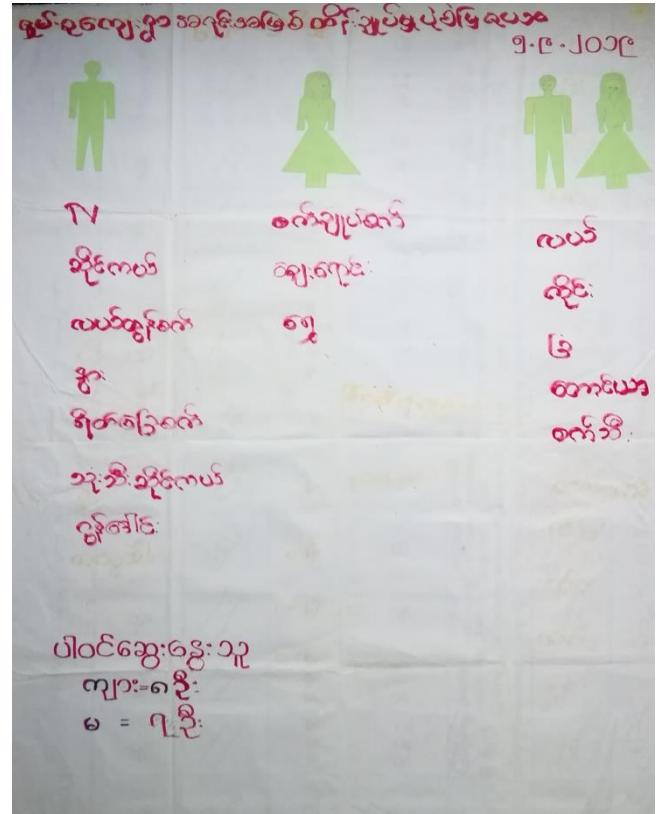 ရှမ်းစုကျေးရွာ အရင်းအမြစ် ထိန်းချုပ်မှုပုံစံပြဇယား
၅.၉.၂၀၁၉
TV
ဆိုင်ကယ်
လယ်ထွန်စက်
နွား
ရိတ်ခြွေစက်
သုံးဘီးဆိုင်ကယ်
ဂွန်ဒေါင်း
စက်ချုပ်စက်
ဈေးရောင်း
ရွှေ
လယ်
ကိုင်း
ခြံ
တောင်ယာ
စက်ဘီး
ပါဝင်ဆွေးနွေးသူ
ကျား=၈ဦး
မ = ၇ဦး